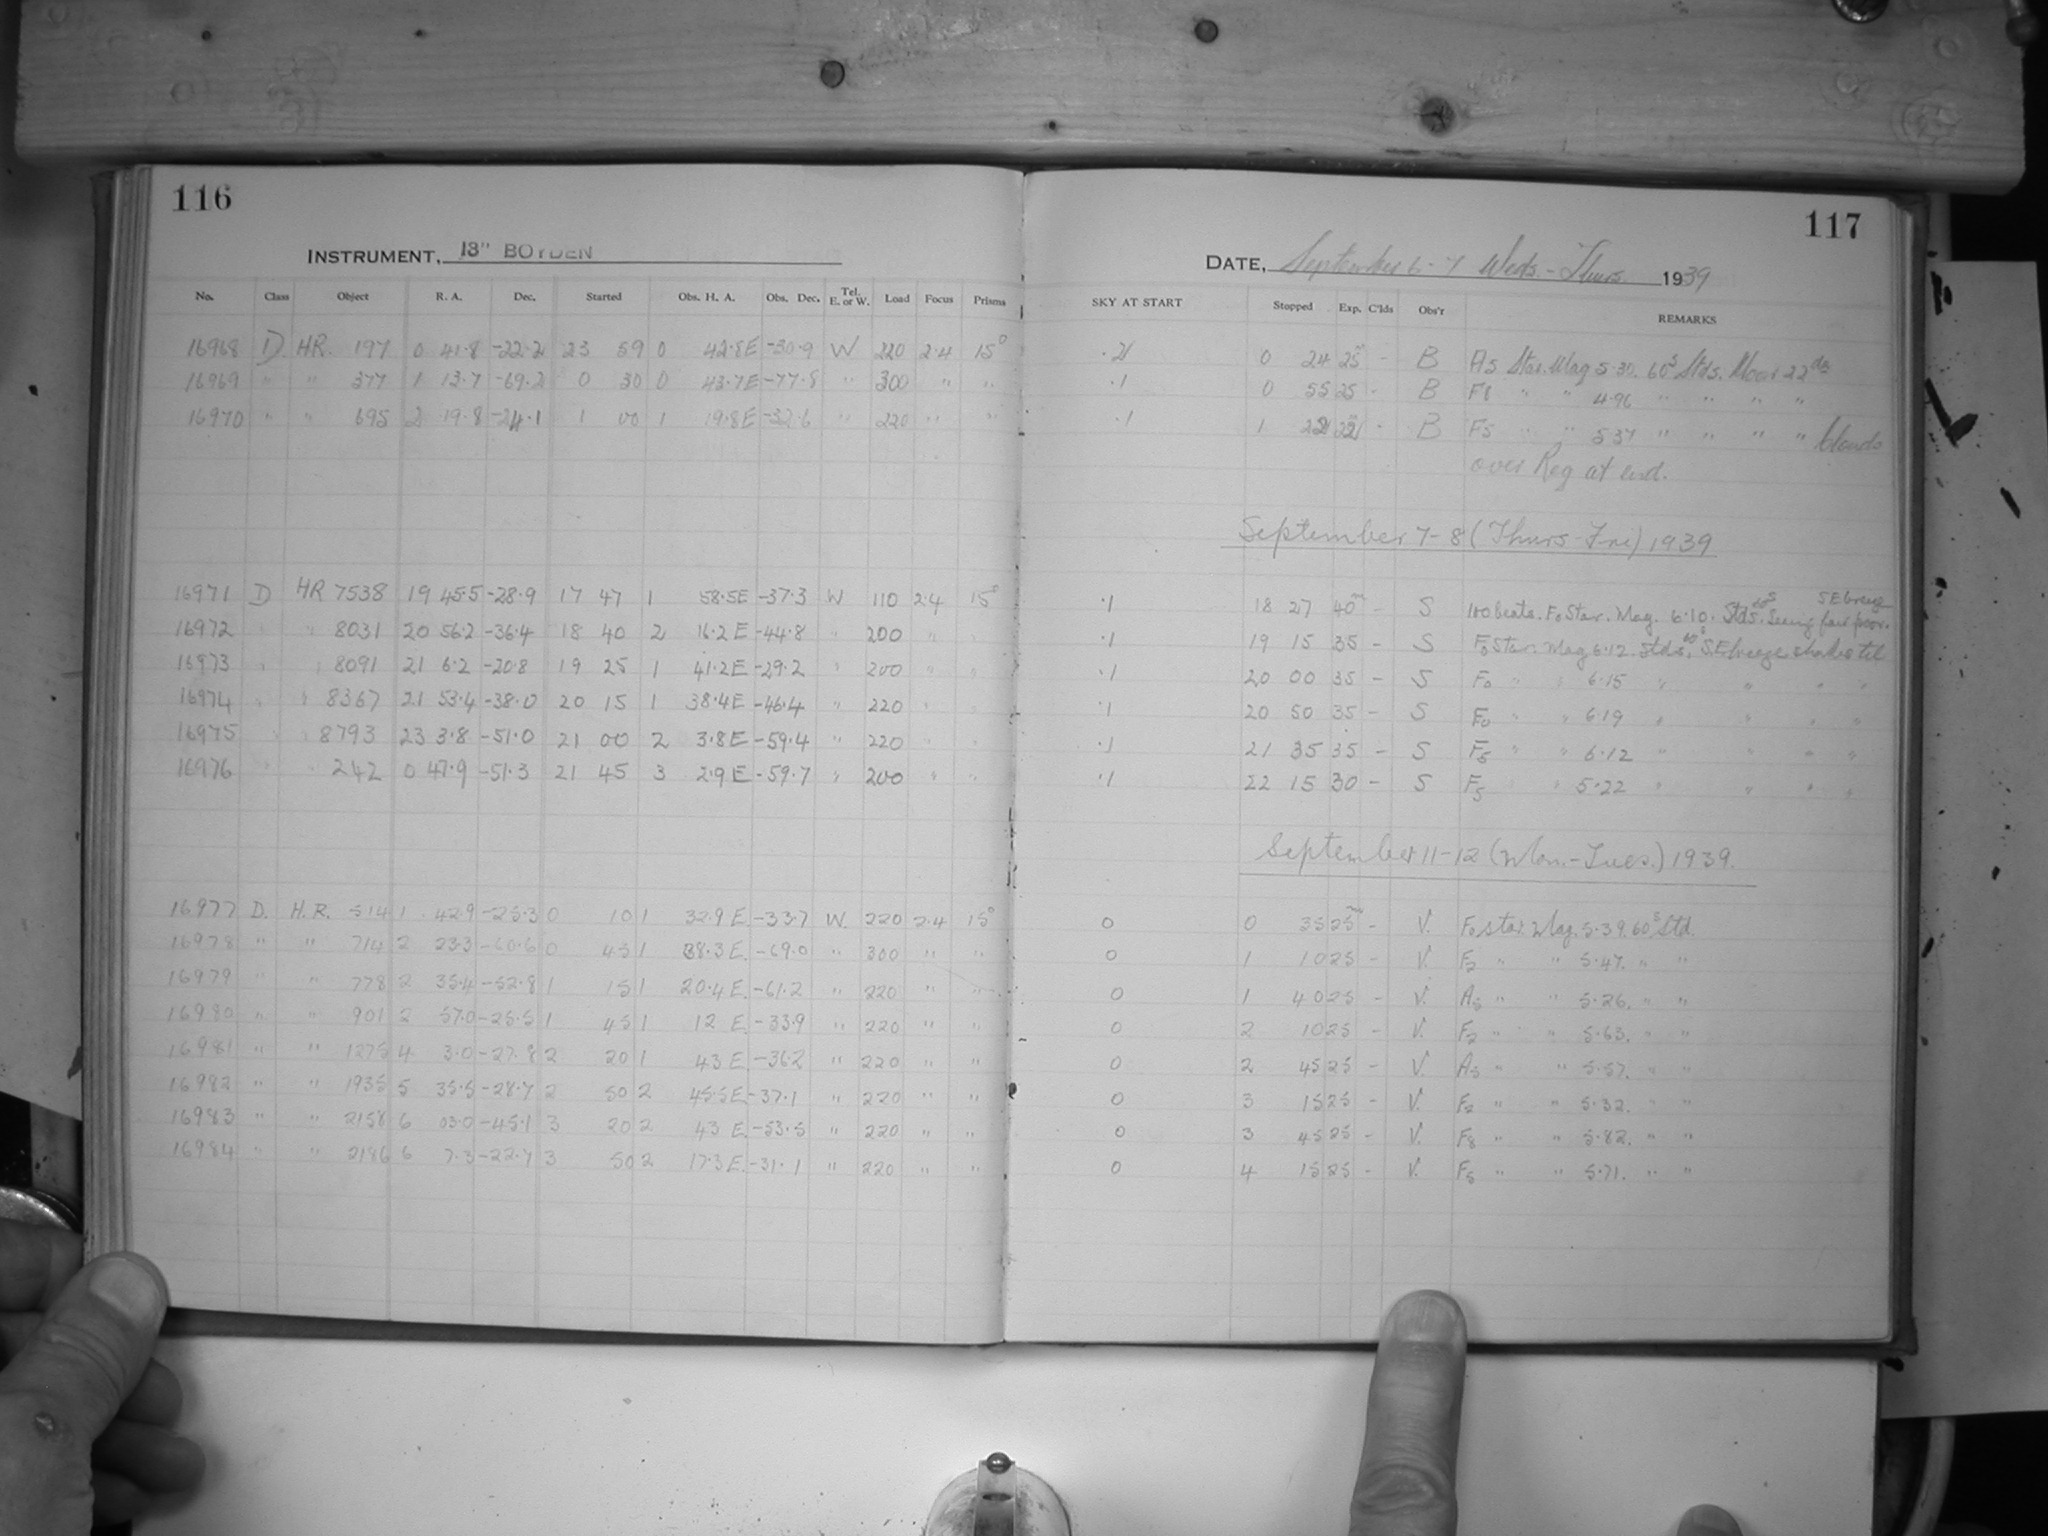 116
INSTRUMENT, 13" BOYDEN
No. Class Object R. A. Dec. Started Obs. H. A. Obs. Dec. Tel. E. or W. Load Focus Prisms
16968 D HR. 197 0 41.8 -22.2 23 59 0 42.8E -30.9 W 220 2.4 15°
16969 " " 377 1 13.7 -69.2 0 30 0 43.7E -77.5 " 300 " "
16970 " " 695 2 19.8 -24.1 1 00 1 19.8E -32.6 " 220 " "
16971 D HR 7538 19 45.5 -28.9 17 47 1 58.5E -37.3 W 110 2.4 15°
16972 " " 8031 20 56.2 -36.4 18 40 2 16.2 E -44.8 " 200 " "
16973 " " 8091 21 6.2 -20.8 19 25 1 41.2E -29.2 " 200 " "
16974 " " 8367 21 53.4 -38.0 20 15 1 38.4E -46.4 " 220 " "
16975 " " 8793 23 3.8 -51.0 21 00 2 3.8E -59.4 " 220 " "
16976 " " 242 0 47.9 -51.3 21 45 3 2.9 E -59.7 " 200 " "
16977 D. H.R. 514 1 42.9 -25.3 0 10 1 32.9 E -33.7 W. 220 2.4 15°
16978 " " 714 2 23.3 -60.6 0 45 1 38.3 E. -69.0 " 300 " "
16979 " " 778 2 35.4 -52.8 1 15 1 20.4 E. -61.2 " 220 " "
16980 " " 901 2 57.0 -25.5 1 45 1 12 E. -33.9 " 220 " "
16981 " " 1275 4 3.0 -27.8 2 20 1 43 E. -36.2 " 220 " "
16982 " " 1935 5 35.5 -28.7 2 50 2 45.5E -37.1 " 220 " "
16983 " " 2158 6 03.0 -45.1 3 20 2 43 E. -53.5 " 220 " "
16984 " " 2186 6 7.3 -22.7 3 50 2 17.3 E. -31.1 " 220 " "
117
DATE, September 6-7 Weds-Thurs. 1939
SKY AT START Stopped Exp. C'lds Obs'r REMARKS
.2 0 24 25m - B A5 Star. Mag 5.30. 60s Stds. Moon 22 ds
.1 0 55 25 - B F8 " " 4.96 " " " "
.1 1 22 22 - B F5 " " 5.37 " " " " Clouds
over Reg at end.
September 7-8 (Thurs-Fri) 1939
.1 18 27 40m - S 100 beats. F0 Star. Mag. 6.10. Stds. 60s Seeing fair poor. S E breeze
.1 19 15 35 - S F0 Star. Mag 6.12 Stds. 60s S.E breeze shakes tel
.1 20 00 35 - S F0 " " 6.15 " " " "
.1 20 50 35 - S F0 " " 6.19 " " " "
.1 21 35 35 - S F5 " " 6.12 " " " "
.1 22 15 30 - S F5 " " 5.22 " " " "
September 11-12 (Mon.-Tues.) 1939.
0 0 35 25m - V. F0 star. Mag. 5.39. 60s Std.
0 1 10 25 - V. F2 " " 5.47. " "
0 1 40 25 - V. A5 " " 5.26. " "
0 2 10 25 - V. F2 " " 5.63. " "
0 2 45 25 - V. A5 " " 5.57. " "
0 3 15 25 - V. F2 " " 5.32. " "
0 3 45 25 - V. F8 " " 5.82. " "
0 4 15 25 - V. F5 " " 5.71. " "